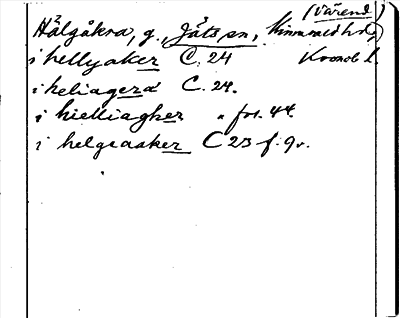 (Värend)
Hälgåkra, g., Jäts sn, Kinnevalds hd
i hellyaker C. 24 Kronob l.
i heliagera C. 24.
i hielliagher " fol. 44.
i helgeaaker C 23 f. 9v.